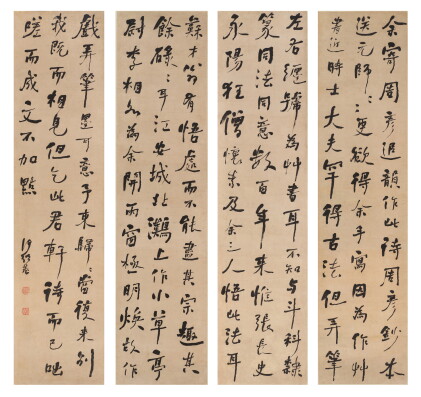 余寄周彥退韻作此詩周彥鈔本
送元師〻更欲得余手寫因為作艸
書近時士大夫罕得古法但弄筆
左右纏號為艸書耳不知与斗科隸
篆同法同意數百年來惟張長史
永陽狂僧懷素及余三人悟此法耳
蘇才翁有悟處而不能盡其宗趣其
餘碌〻耳江安城北灘上作小草亭
尉李相如為余開兩窗極明煥故作
戲弄筆墨可意子東歸〻當復來別
我既而相見但乞此君軒詩而已咄
嗟而成文不加點
何紹基